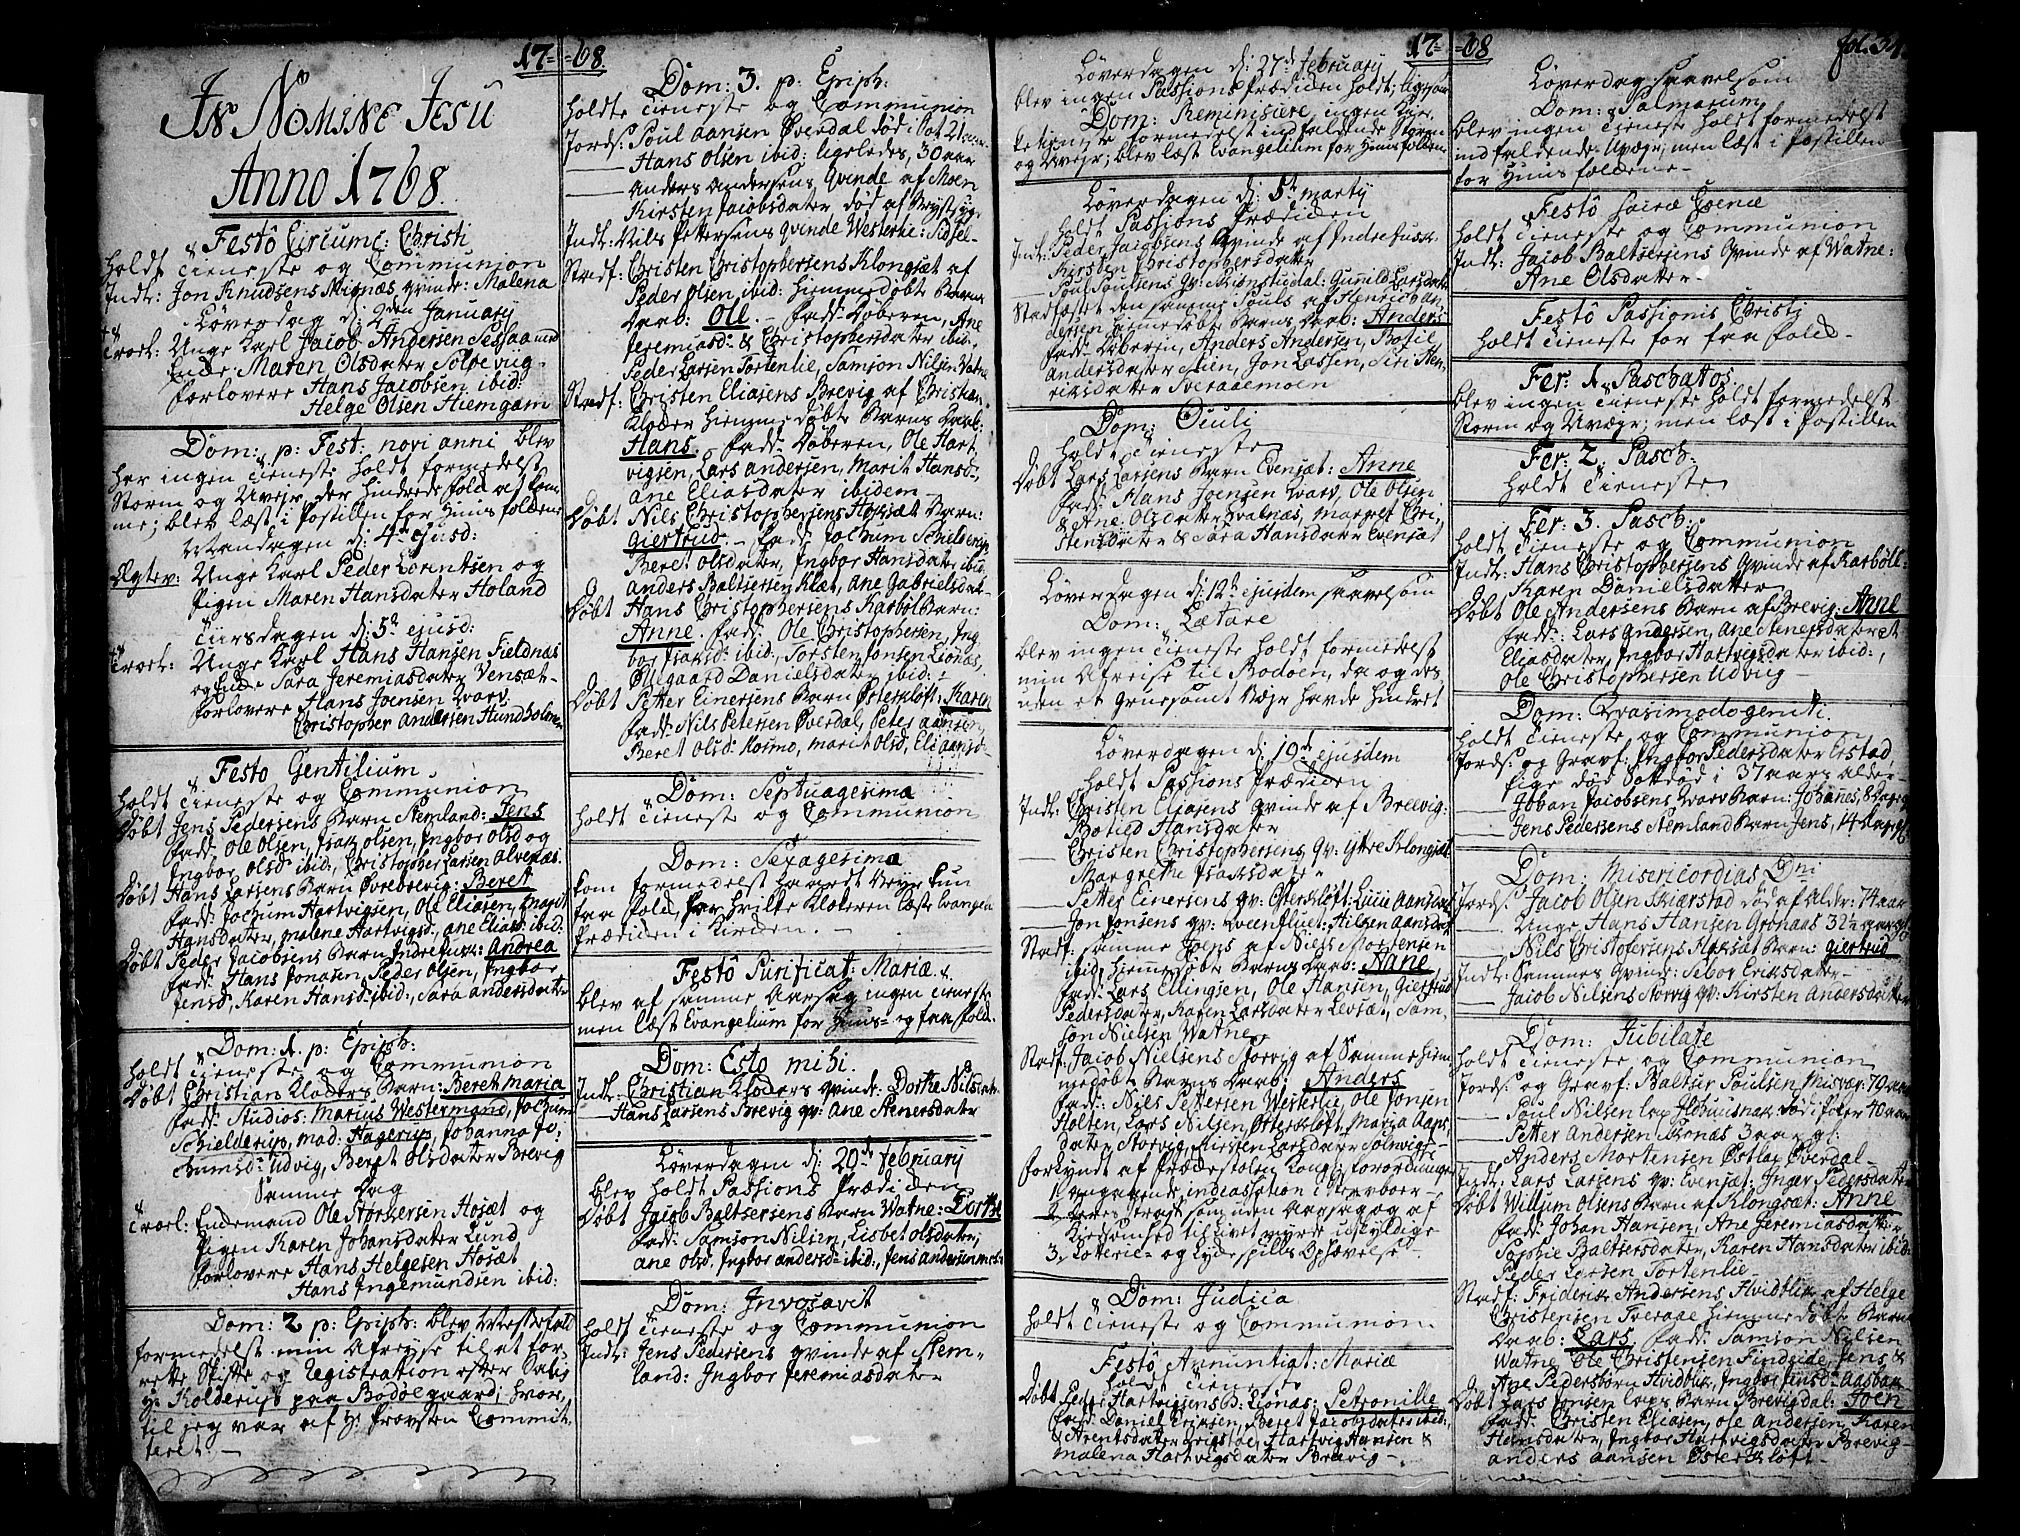 17=
=68
In Nomine Jesu
Anno 1768.
Festô Circumc: Christi
holdt Tieneste og Communion
Indt: Jon Knudsens Misnæs qvinde: Malena
Løverdag d: 2den January
Trorl: Unge Karl Jacob Andersen
Enke Maren Olsdater Solpevug
forlovere Hans Jacobsen ibid:
Helge Olsen Hiemgam
Dom: p: Fest: novi anni blev
her ingen Tieneste holdt formedelst
Storm og Uvejr, der hindrede folk at kom-
me; blev læst i Postillen for Huus folckene
Mandagen d: 4de ejusd:
Ægtev: Unge Karl Peder Lorentsen og
Pigen Maren Hansdater Holand
Tiirsdagen d: 5te ejusd:
Trorl: Unge Karl Hans Hansen Fieldnas
og Enke Sara Jeremiasdater Vensæt
forlovere Hans Joensen Kvarv
Christopher Andersen Hundholmen
Festo Gentilium
holdt Tieneste og Communion
Døbt Jens Pedersens Barn Nemland: Jens
fadd: Ole Olsen, Isak Olsen, Ingbor Olsd og
Ingbor Olsd ibid:, Christopher Larsen Alvenæs:
Døbt Hans Larsens Barn Øvrebrevig: Beret
fadd: Jochum Hartvigsen, Ole Eliasen, Marit
Hansdater, Malene Hartvigsd:, Ane Eliasd: ibid:
Døbt Peder Jacobsens Barn Indrefusk: Andrea
fadd: Hans Jonasen, Peder Olsen, Ingbor
Jensd:, Karen Hansd: ibid:, Sara Andersdater
Dom: 1. p: Epiph:
holdt Tieneste og Communion
Døbt Christian Kloders Barn: Beret Maria
fadd: Studios: Marius Westermand, Jochum
Schielderup, mad: Hagerup, Johanna Jo-
chumsd: Udvig, Beret Olsdater Brevig
Samme Dag
Trorl: Enkemand Ole Størkersen Høsæt og
Pigen Karen Johansdater Lund
forlovere Hans Helgesen Høsæt
Hans Ingemundsen ibid:
Dom: 2 p: Epiph: blev Messefald
formedelst min Afrejse til at for-
rette Skifte og Registration efter Salig
Hr Kolderup paa Bodøegaard; hvor-
til jeg var af Hr Provsten Commit-
teret –
Dom: 3. p: Epiph:
holdte Tieneste og Communion
Jords: Poul Aansen Øverdal død i Sot 21 aar
Hans Olsen ibid: ligeledes, 30 aar
Anders Andersens Qvinde af Moen
Kirsten Jacobsdater død af Brystsyge
Indt: Nils Pettersens qvinde Westerlie: Sidsel
Stadf: Christen Christophersens Klongsæt af
Peder Olsen ibid: hiemmedøbte Barns
Daab: Ole. – fadd: Døberen, Ane
Jeremiasd: & Christophersdater ibid:
Peder Larsen Tortenlie, Samson Nilsen Watne
Stadf: Christen Eliasens Brevig af Christian
Kloder hiemmedøbte Barns Daab:
Hans. fadd: Døberen, Ole Hart
vigsen, Lars Andersen, Marit Hansd:
Ane Eliasdater ibidem –
Døbt Nils Christophersens Hoksæt Barn:
Giertrud. – fadd: Jochum Schielderup
Beret Olsdater, Ingbor Hansdater ibid:
Anders Baltsersen Klæt, Ane Gabrielsdat–
Døbt Hans Christophersens Karbøl Barn:
Anne. fadd: Ole Christophersen, Ing
bor Isaksd: ibid:, Torsten Jonsen Lionæs,
Øllgaard Danielsdater ibid:
Døbt Petter Einersens Barn Østerkløft: Karen
fadd: Nils Petersen Øverdal, Peter Aansen,
Beret Olsd: Kosmo, Marit Olsd, Eli Aansd–
Dom: Septuagesima
holdt Tieneste og Communion
Dom: Sexagesima
kom formedelst haardt Vejr kun
faa folk, for hvilke Klokeren læste Evangelii
Prædiken i Kirken. –
Festô Purificat: Mariæ
blev af samme Aarsag ingen Tieneste
men læst Evangelium for Huus- og faa folk.
Dom: Esto mihi.
Indt: Christian Kloders qvinde: Dorthe Nilsdater
Hans Larsens Brevig qv: Ane Stenersdater
Løverdagen d: 20de February
blev holdt Passions Prædiken
Døbt Jacob Baltsersens Barn Watne: Dorthe
fadd: Samson Nilsen, Lisbet Olsdater,
Ane Olsd, Ingbor Andersd: ibid:, Jens Andersen
Dom: Invocavit
holdt Tieneste og Communion
Indt: Jens Pedersens qvinde af Nem-
land: Ingbor Jeremiasdater
17=
=68
fol. 34.
Løverdagen d: 27de February
blev ingen Passions Prædiken holdt; ligesom
Dom: Reminiscere, ingen Kjer-
ketieneste formedelst indfaldende Storm
og Uvejr; blev læst Evangelium for Huusfolckene
Løverdagen d: 5te Marty
holdt Passions Prædiken
Indt: Peder Jacobsens Qvinde af Indrefusk.
Kirsten Christophersdater
Poul Poulsens Qv: Skionstudal: Gunild Larsdater
Stadfæstet den samme Pouls af Henrich An
dersen hiemedøbte Barns Daab: Anders
fadd: Døberen, Anders Andersen, Botil
Andersdater, Jon Lassen, Siri Hen-
richsdater Sveraaemoen
Dom: Oculi
holdt Tieneste
Døbt Lars Larsens Barn Evensæt: Anne
fadd: Hans Joensen Kvarv, Ole Olsen
& Ane Olsdater Svatnæs, Margret Chri-
stensdater & Sara Hansdater Evensæt
Løverdagen d: 12te ejusdem saavelsom
Dom: Lætare
blev ingen Tieneste holdt formedelst
min Afreise til Bodøen, da og des-
uden et gruesomt Vejr havde hindret
Løverdagen d: 19de ejusdem
holdt Passions Prædiken
Indt: Christen Eliasens qvinde af Breevig:
Botild Hansdater
Christen Christophersens qv: Yttre Klongsæt:
Margrethe Isaksdater
Petter Einersens qv: Østerkløft: Lucie Aansdat
Jon Jonsens qv: Kvenfluet: Hilken Aansdat
Stadf: samme Joens af Niels Mortensen
ibid: hiemedøbte Barns Daab: Nane
fadd: Lars Ellingsen, Ole Hansen, Giertrud
Pedersdater, Karen Larsdater Levsæt, Sam-
son Nielsen Watne
Stadf: Jacob Nielsens Storvig af Samme hiem
medøbt Barns Daab: Anders
fadd: Niels Pettersen Westerlie, Ole Jonsen
Holten, Lars Nilsen, Østerkløft, Maria Aans
dater Storvig, Kirsten Larsdater Solnvig
forkyndt af Prædestolen Kongl: forordninger
1. angaaende indcassation i Sterboer –
2. Deres straf som uden Aarsag og af
Kedsomhed til Livet myrde uskyldige
3. Lotterie- og Lykkespills Ophævelse
Dom: Judica
holdt Tieneste og Communion.
Festô Annuntiat: Mariæ
holdt Tieneste
Døbt Peder Hartvigsens B: Lionæs: Petronille
fadd: Daniel Ericksen, Beret Jacobsdater ibid:
& Arentsdater Grigstad, Hartvig Hansen &
Malena Hartvigsdater Brevig –
Løverdag saavelsom
Dom: Palmarum
blev ingen Tieneste holdt formedelst
indfaldende Uvejr, men læst i Postillen
for Huusfolckene –
Festô Sacræ Coenæ
holdt Tieneste og Communion
Indt: Jacob Baltsersens Qvinde af Watne:
Ane Olsdater –
Festô Passionis Christi
holdt Tieneste for faa folck –
Fer: 1. Paschatos.
blev ingen Tieneste holdt formedelst
Storm og Uvejr; men læst i Postillen
Fer: 2. Pasch:
holdt Tieneste
Fer: 3. Pasch:
holdt Tieneste og Communion
Indt: Hans Christophersens Qvinde af Karbøll:
Karen Danielsdatter
Døbt Ole Andersens Barn af Brevig: Anne
fadd: Lars Andersen, Ane Stenersdater et
Eliasdater, Ingbor Hartvigsdater ibid:,
Ole Christophersen Udvug –
Dom: Qvasimodogeniti.
holdt Tieneste og Communion
Jords: og Gravf: Ingbor Pedersdater Erstad,
Pige død Sottdød i 37 aars alder –
Johan Jacobsens Kvarv Barn: Johanes, 8 Dage
Jens Pedersens Nemland Barn Jens, 14 Dage gl
Dom: Misericordias Dni
Jords: Jacob Olsen Skierstad død af Alder: 74 aar
Unge Hans Hansen Grønaas 32½ aar gl
Nils Christofersens Hoksæt Barn: Giertrud
Indt: Sammes Qvinde: Seboe Eriksdater –
Jacob Nilsens Storvig qv: Kirsten Andersdatter
Dom: Jubilate
holdt Tieneste og Communion
Jords: og Gravf: Baltser Poulsen Misvær: 70 aar
Poul Nilsen Lap død i feber 40 aar
Petter Andersen Skonas 3 aar gl:
Anders Mortensen Østlap Øverdal –
Indt: Lars Larsens qv: Evensæt: Inger Pedersdater
Døbt Willum Olsens Barn af Klongsæt: Anne
fadd: Johan Hansen, Ane Jeremiasdatter
Sophie Baltsersdater, Karen Hansdater ibid:
Peder Larsen Tortenlie –
Stadf: Friderik Andersens Hvidblik af Helge
Christensen Tveraae hiemmedøbte Barns
Daab: Lars. fadd: Samson Nilsen
Watne, Ole Christensen Findeide, Jens &
Ane Pedersbørn Hvidblik, Ingbor Jensd: Aasbak
Døbt Lars Jonsen Laps Barn Brevigdal: Joen
fadd: Christen Eliasen, Ole Andersen, Karen
Hansdater, Ingbor Hartvigsdater Brevig –
Anders Aansen Østerkløft –